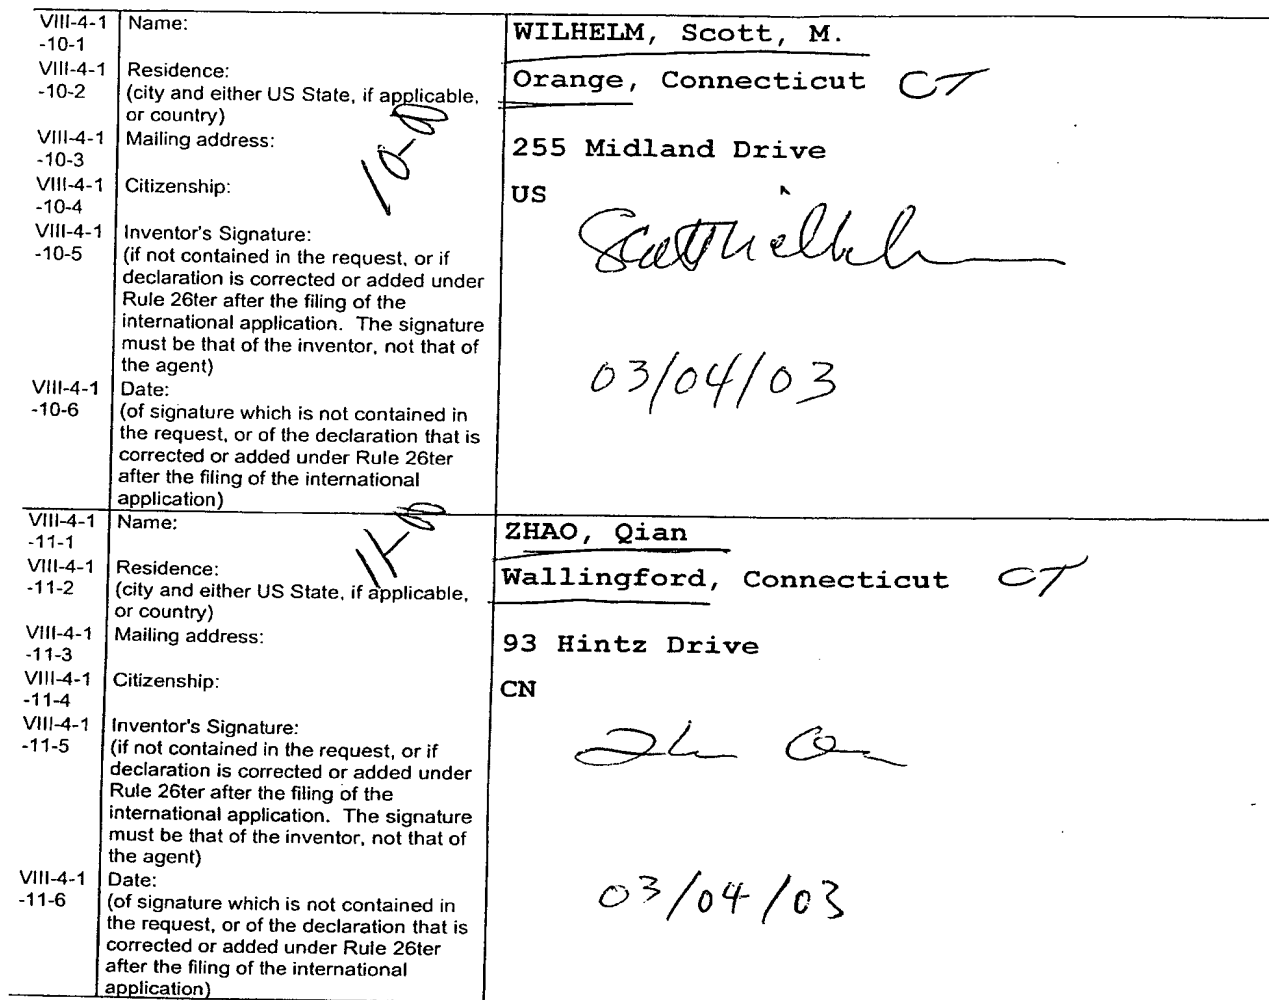 VIII-4-1 Name: WILHELM, Scott, M.
-10-1
VIII-4-1 Residence: Orange, Connecticut CT
-10-2 (city and either US State, if applicable,
or country)
VIII-4-1 Mailing address: 255 Midland Drive
-10-3
VIII-4-1 Citizenship: US
-10-4
VIII-4-1 Inventor's Signature:
-10-5 (if not contained in the request, or if
declaration is corrected or added under
Rule 26ter after the filing of the
international application. The signature
must be that of the inventor, not that of
the agent)
VIII-4-1 Date: 03/04/03
-10-6 (of signature which is not contained in
the request, or of the declaration that is
corrected or added under Rule 26ter
after the filing of the international
application)
VIII-4-1 Name: ZHAO, Qian
-11-1
VIII-4-1 Residence: Wallingford, Connecticut CT
-11-2 (city and either US State, if applicable,
or country)
VIII-4-1 Mailing address: 93 Hintz Drive
-11-3
VIII-4-1 Citizenship: CN
-11-4
VIII-4-1 Inventor's Signature:
-11-5 (if not contained in the request, or if
declaration is corrected or added under
Rule 26ter after the filing of the
international application. The signature
must be that of the inventor, not that of
the agent)
VIII-4-1 Date: 03/04/03
-11-6 (of signature which is not contained in
the request, or of the declaration that is
corrected or added under Rule 26ter
after the filing of the international
application)